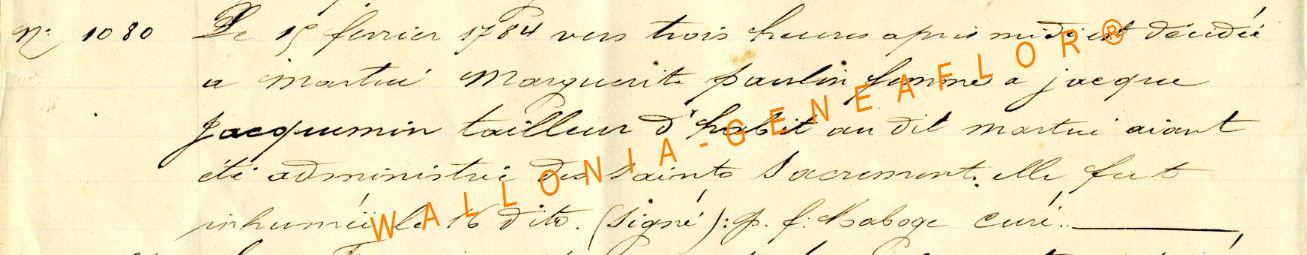 N° 1080 Le 15 février 1784 vers trois heures après midi est décédée
a martué Marguerite paulin femme a jacque
Jacquemin tailleur d'habit au dit martué aiant
été administrée des saints Sacrement. elle fut
inhumée le 16 dito. (signé): p. f. Maboge curé.
WALLONIA-GENEAFLOR®